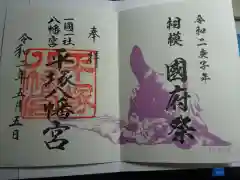 令和二庚子年
相模 國府祭
奉拝
一國一社
八幡宮
平塚八幡宮
令和二年五月五日